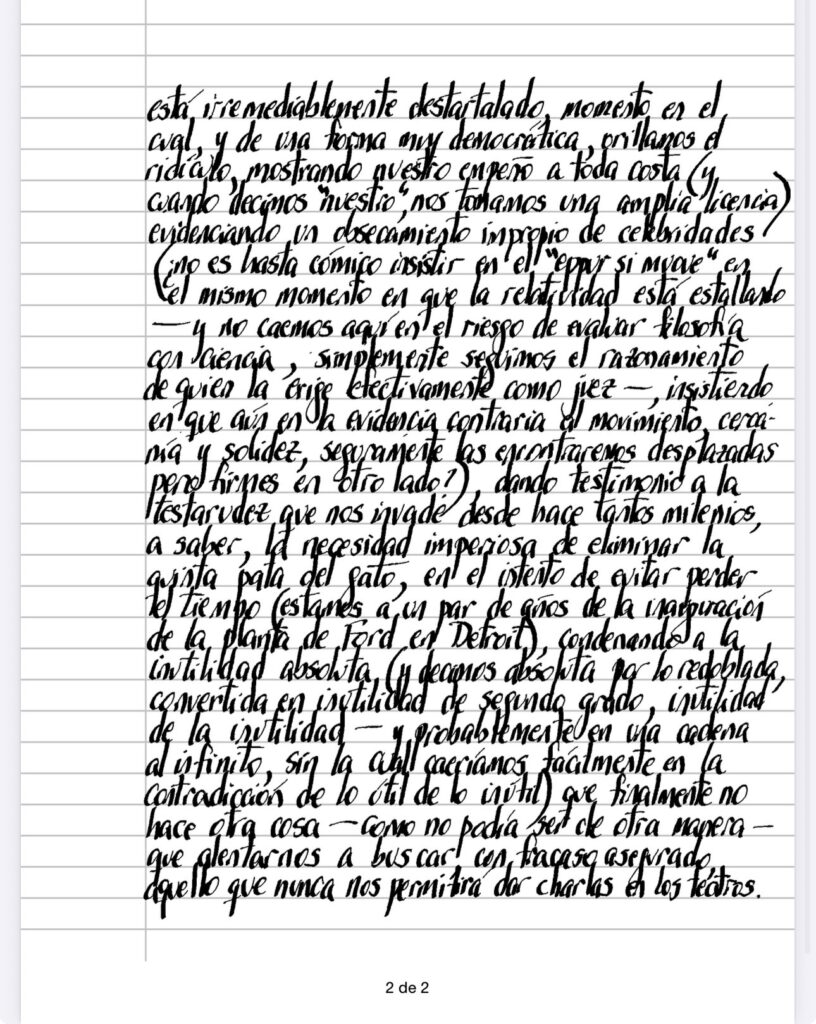 está irremediablemente destartalado, momento en el
cual, y de una forma muy democrática, orillamos el
ridículo, mostrando nuestro empeño a toda costa (y
cuando decimos "nuestro", nos tomamos una amplia licencia)
evidenciando un obsecamiento impropio de celebridades
(¿no es hasta cómico insistir en el "eppur si muove" en
el mismo momento en que la relatividad está estallando
— y no caemos aquí en el riesgo de evaluar filosofía
con ciencia, simplemente seguimos el razonamiento
de quien la erige efectivamente como juez —, insistiendo
en que aún en la evidencia contraria al movimiento, cerca-
nía y solidez, seguramente las encontraremos desplazadas
pero firmes en otro lado?), dando testimonio a la
testarudez que nos invade desde hace tantos milenios,
a saber, la necesidad imperiosa de eliminar la
quinta pata del gato, en el intento de evitar perder
el tiempo (estamos a un par de años de la inauguración
de la planta de Ford en Detroit), condenando a la
inutilidad absoluta (y decimos absoluta por lo redoblada,
convertida en inutilidad de segundo grado, inutilidad
de la inutilidad — y probablemente en una cadena
al infinito, sin la cual caeríamos fácilmente en la
contradicción de lo útil de lo inútil) que finalmente no
hace otra cosa — como no podía ser de otra manera —
que alentarnos a buscar con fracaso asegurado,
aquello que nunca nos permitirá dar charlas en los teatros.
2 de 2